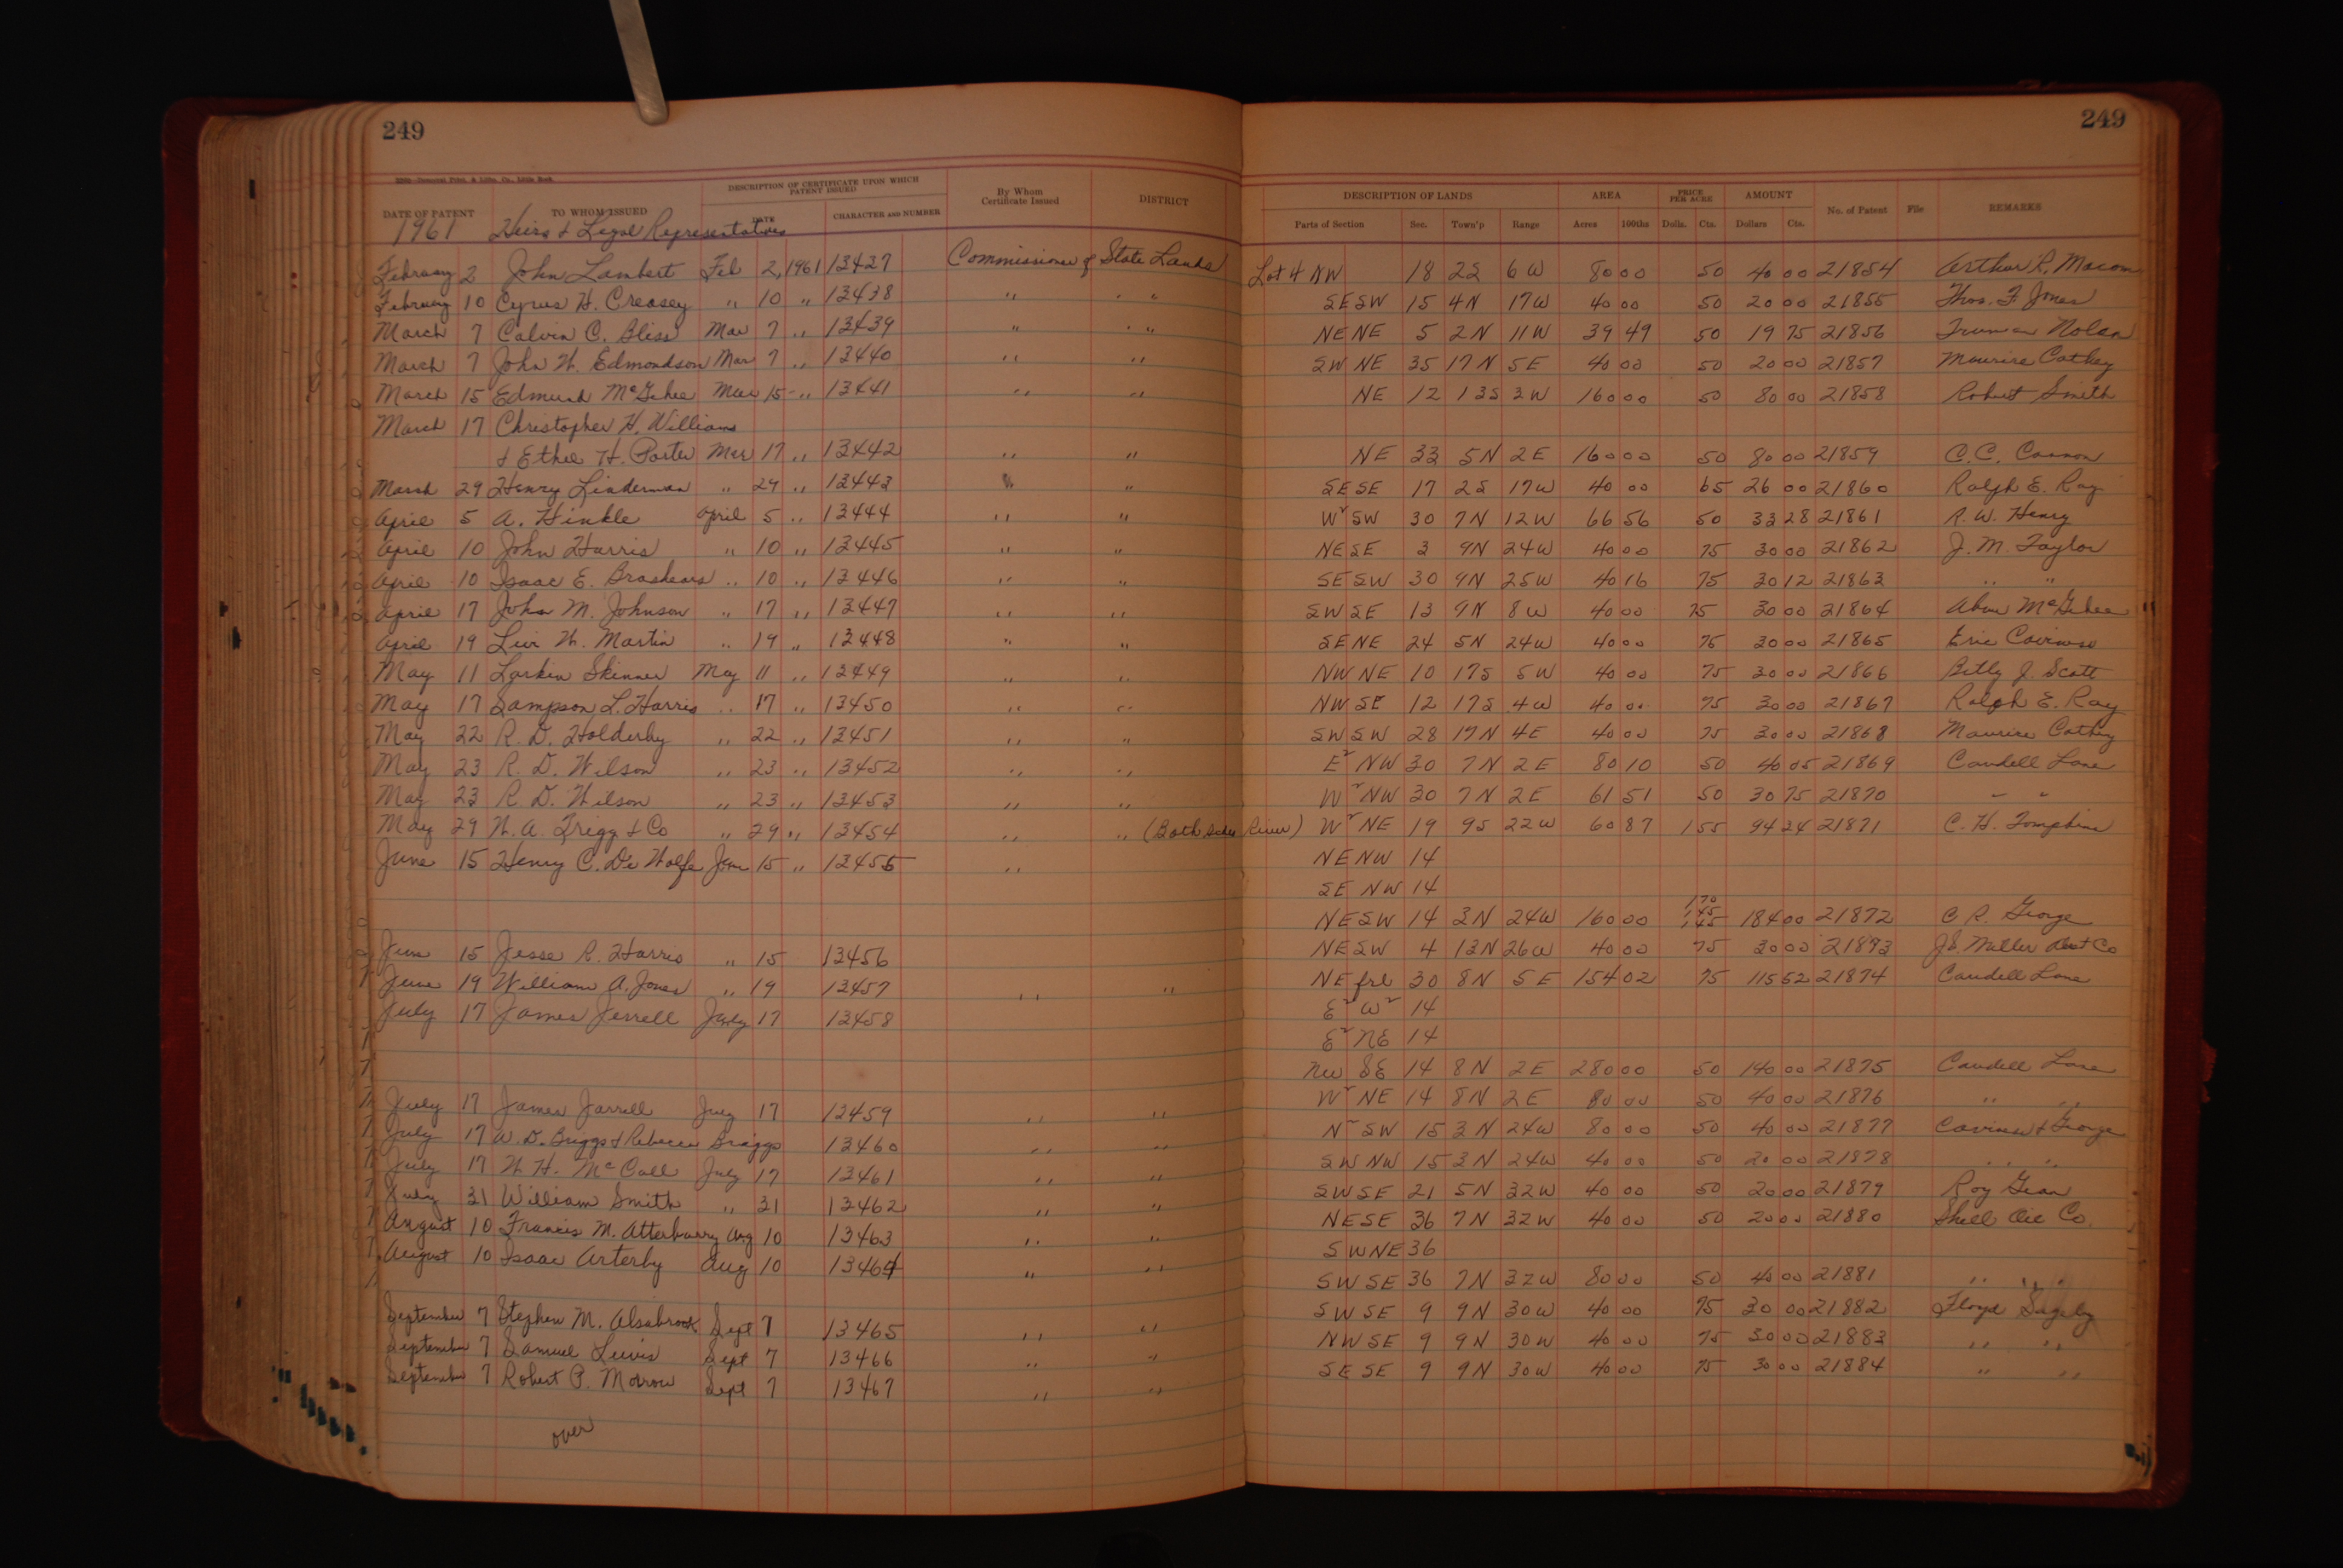 249
249
DATE OF PATENT TO WHOM ISSUED DESCRIPTION OF CERTIFICATE UPON WHICH PATENT ISSUED DATE CHARACTER AND NUMBER By Whom Certificate Issued DISTRICT DESCRIPTION OF LANDS Parts of Section Sec. Town'p Range AREA Acres 100ths PRICE PER ACRE Dolls. Cts. AMOUNT Dollars Cts. No. of Patent File REMARKS
1961 Heirs & Legal Representatives
February 2 John Lambert Feb 2, 1961 13437 Commissioner of State Lands Lot 4 NW 18 2S 6W 80 00 50 40 00 21854 Arthur R. Macom
February 10 Cyrus H. Creasey " 10 " 13438 " " " SESW 15 4N 17W 40 00 50 20 00 21855 Thos. F. Jones
March 7 Calvin C. Bliss Mar 7 " 13439 " " " NENE 5 2N 11W 39 49 50 19 75 21856 Truman Nolan
March 7 John W. Edmondson Mar 7 " 13440 " " SW NE 35 17N 5E 40 00 50 20 00 21857 Maurice Cathey
March 15 Edmund McGehee Mar 15 " 13441 " " NE 12 13S 3W 160 00 50 80 00 21858 Robert Smith
March 17 Christopher H. Williams
& Ethel H. Porter Mar 17 " 13442 " " NE 33 5N 2E 160 00 50 80 00 21859 C.C. Cannon
March 29 Henry Linderman " 29 " 13443 " " SESE 17 2S 17W 40 00 65 26 00 21860 Ralph E. Ray
April 5 A. Hinkle April 5 " 13444 " " W2SW 30 7N 12W 66 56 50 33 28 21861 R. W. Henry
April 10 John Harris " 10 " 13445 " " NESE 3 9N 24W 40 00 75 30 00 21862 J. M. Taylor
April 10 Isaac E. Brashears " 10 " 13446 " " SESW 30 9N 25W 40 16 75 30 12 21863 " "
April 17 John M. Johnson " 17 " 13447 " " SWSE 13 9N 8W 40 00 75 30 00 21864 McGehee
April 19 Levi W. Martin " 19 " 13448 " " SENE 24 5N 24W 40 00 75 30 00 21865 Eric
May 11 Larkin Skinner May 11 " 13449 " " NWNE 10 17S 5W 40 00 75 30 00 21866 Billy J. Scott
May 17 Sampson L. Harris " 17 " 13450 " " NWSE 12 17S 4W 40 00 75 30 00 21867 Ralph E. Ray
May 22 R. D. Holderby " 22 " 13451 " " SWSW 28 17N 4E 40 00 75 30 00 21868 Maurice Cathey
May 23 R. D. Wilson " 23 " 13452 " " E2 NW 30 7N 2E 80 10 50 40 05 21869 Caudell Lane
May 23 R. D. Wilson " 23 " 13453 " " W2 NW 30 7N 2E 61 51 50 30 75 21870 " "
May 29 W. A. Trigg & Co " 29 " 13454 " " (Both sides River) W2 NE 19 9S 22W 60 87 1 55 94 34 21871 C. H. Tompkins
June 15 Henry C. De Wolfe June 15 " 13455 " NENW 14
SE NW 14
NESW 14 3N 24W 160 00 1 70 1 45 1 45 184 00 21872 C. R. George
June 15 Jesse R. Harris " 15 13456 NESW 4 13N 26W 40 00 75 30 00 21873 Miller Co
June 19 William A. Jones " 19 13457 " " NE frl 30 8N 5E 154 02 75 115 52 21874 Caudell Lane
July 17 James Jerrell July 17 13458 E2 W2 14
E2 NE 14
NW SE 14 8N 2E 280 00 50 140 00 21875 Caudell Lane
July 17 James Jarrell July 17 13459 " " W2 NE 14 8N 2E 80 00 50 40 00 21876 " "
July 17 W. D. Briggs & Rebecca Briggs 13460 " " N2 SW 15 3N 24W 80 00 50 40 00 21877 & George
July 17 W. H. McCall July 17 13461 " " SWNW 15 3N 24W 40 00 50 20 00 21878 " "
July 31 William Smith " 31 13462 " " SWSE 21 5N 32W 40 00 50 20 00 21879 Roy Gean
August 10 Francis M. Atterburry Aug 10 13463 " " NESE 36 7N 32W 40 00 50 20 00 21880 Shell Oil Co.
August 10 Isaac Arterby Aug 10 13464 " " SWNE 36
SWSE 36 7N 32W 80 00 50 40 00 21881 " " "
September 7 Stephen M. Alsabrook Sept 7 13465 " " SWSE 9 9N 30W 40 00 75 30 00 21882 Floyd
September 7 Samuel Lewis Sept 7 13466 " " NWSE 9 9N 30W 40 00 75 30 00 21883 " "
September 7 Robert P. Morrow Sept 7 13467 " " SESE 9 9N 30W 40 00 75 30 00 21884 " "
over